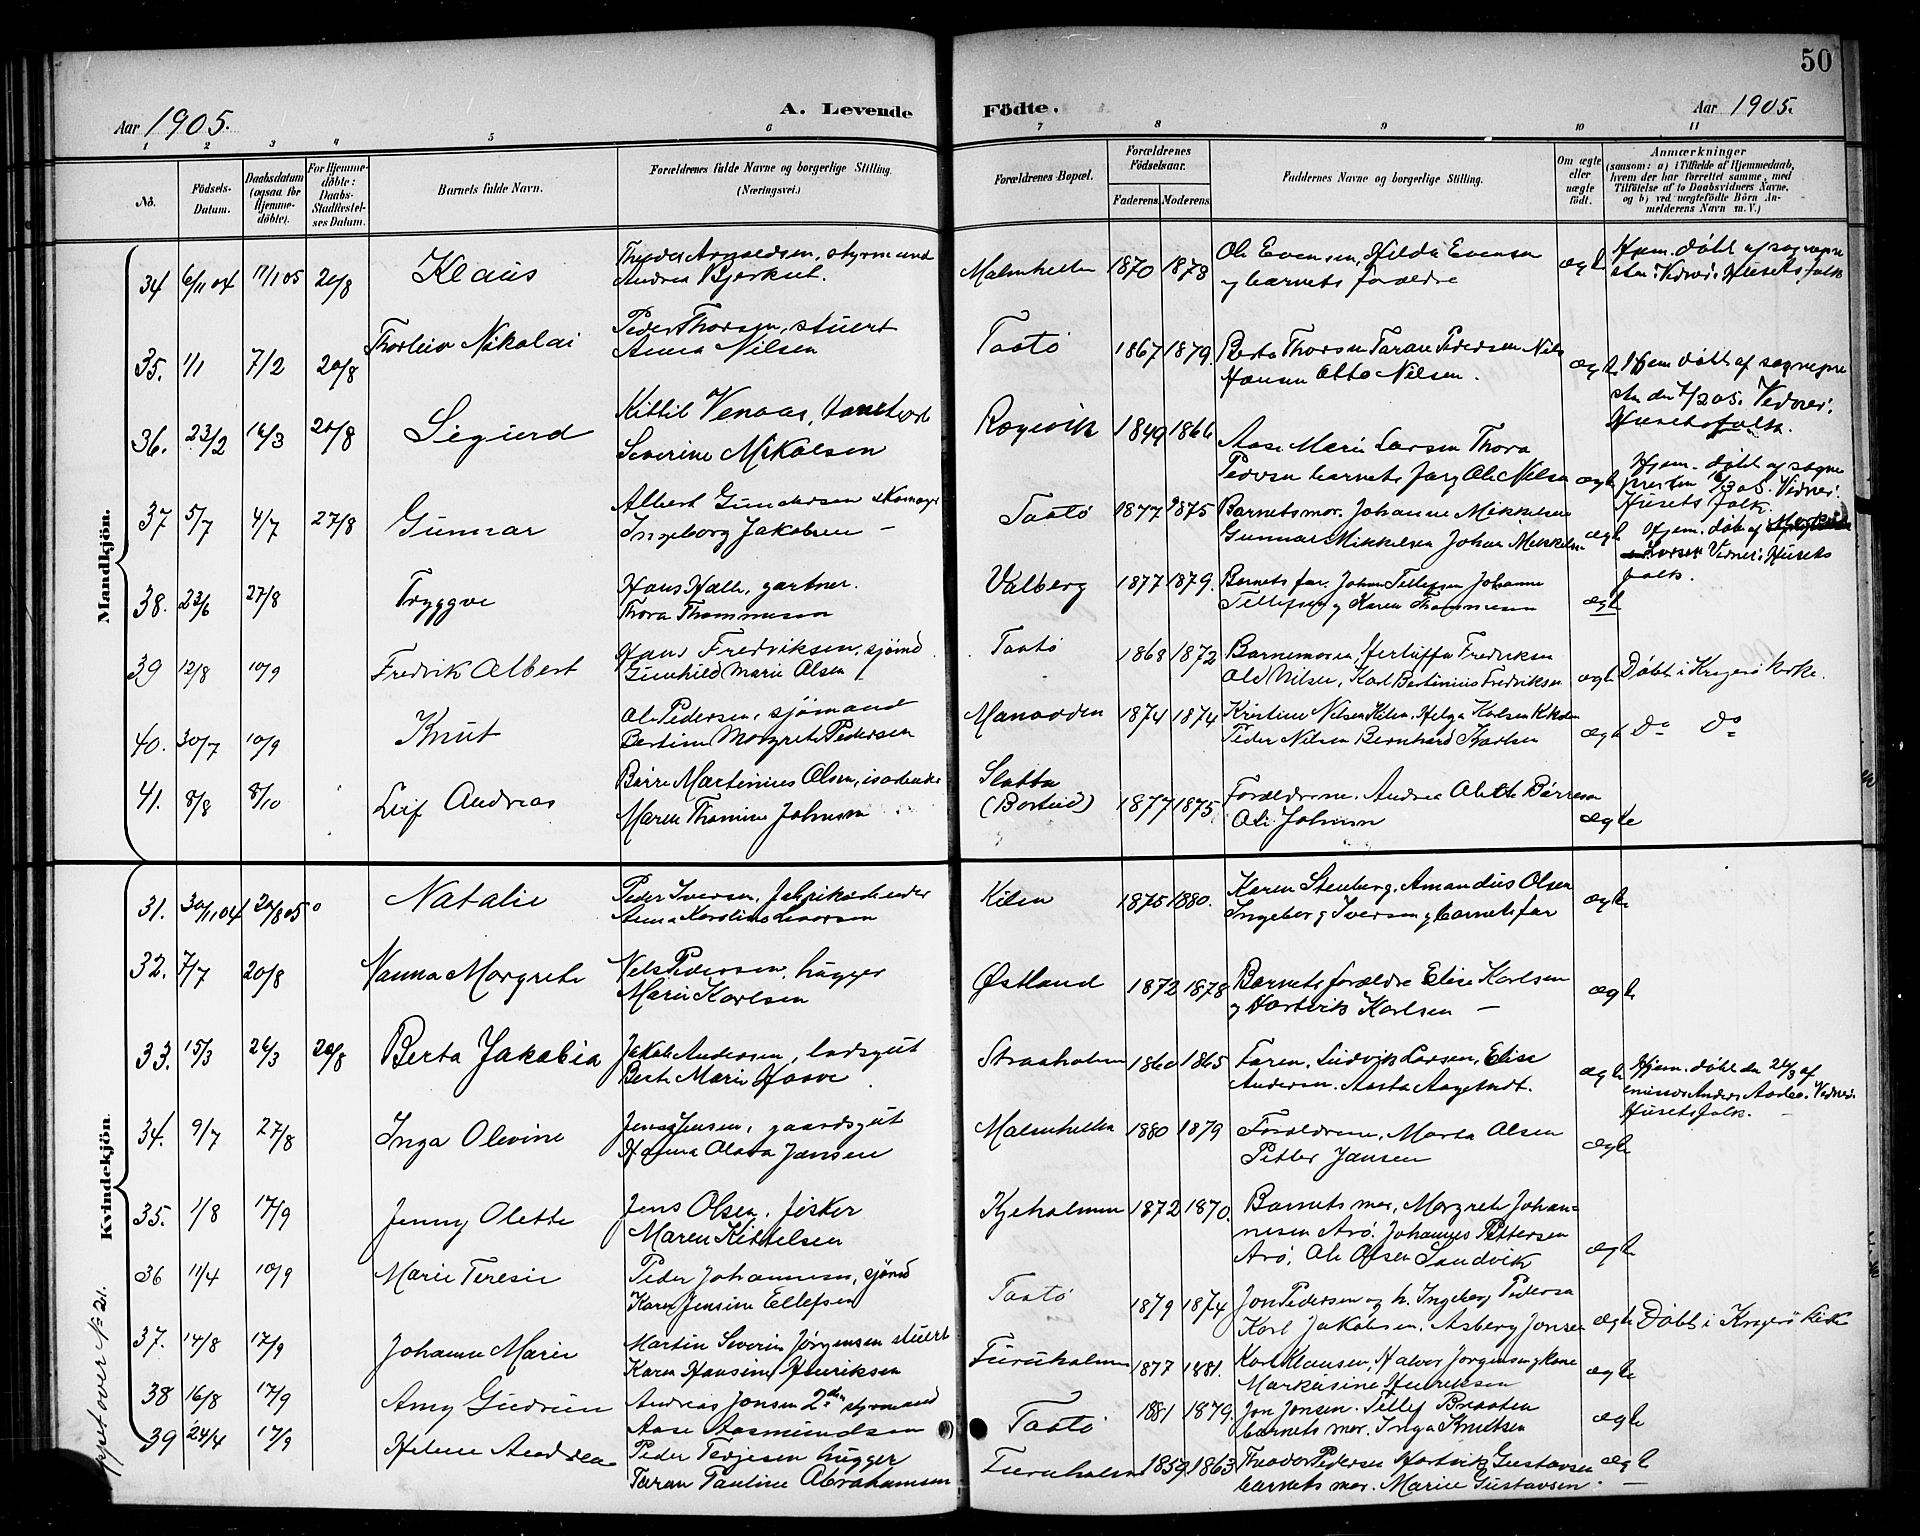 50
Aar 1905.
A. Levende Födte.
Aar 1905.
1 2 3 4 5 6 7 8 9 10 11
No.
Födsels-Datum.
Daabsdatum (ogsaa før Hjemme-döbte).
For Hjemme-döbte: Daabs-Stadfæstel-ses Datum.
Barnets fulde Navn.
Forældrenes fulde Navne og borgerlige Stilling. (Næringsvei.)
Forældrenes Bopæl.
Forældrenes Födselsaar.
Faderens. Moderens.
Faddernes Navne og borgerlige Stilling.
Om ægte eller uægte födt.
Anmærkninger
(saasom: a) i Tilfælde af Hjemmedaab, hvem der har forrettet samme, med Tilföielse af to Daabsvidners Navne, og b) ved uægtefödte Börn An-melderens Navn m. V.)
Mandkjön.
34 6/11 04 11/1 05 20/8 Klaus
Arnoldsen, styrmand
Andrea Bjerkut.
Malmhella 1870 1878
Ole Evensen, Hilda Evensen
og barnets forældre
ægte
Hjem. døbt af sognepre
sten. Vidner: Husets folk
35. 1/1 7/2 20/8 Thorleiv Nikolai
Peder Thorsen, stuert
Anna Nilsen
Taatö 1867 1879.
Berta Thorsen Taran Pedersen Nils
Hansen Otto Nilsen.
ægte
Hjem døbt af sognepre
sten den 7/2 05. Vidner:
Husets folk.
36. 23/2 16/3 20/8 Sigurd
Kittil Venaas,
Severine Mikalsen
Røgevik 1849 1866
Aase Marie Larsen Thora
Pedersen barnets far og Ole Nilsen
ægte
Hjem. døbt af sogne
presten 16/3 05. Vidner:
Husets folk.
37 5/7 4/7 27/8 Gunnar
Albert Gundersen skomager
Ingeborg Jakobsen —
Taatö 1877 1875
Barnets mor. Johanne Mikkelsen
Gunnar Mikkelsen Johan Mikkelsen
ægte
Hjem. døbt af
Larsen Vidner: Husets
folk.
38. 23/6 27/8 Tryggve
Hans Halle, gartner.
Thora Thommesen
Valberg 1877 1879.
Barnets far. Johan Tellefsen Johanne
Tellefsen og Karen Thommesen
ægte
39 12/8 10/9 Fredrik Albert
Hans Fredriksen, sjömd.
Gunhild Marie Olsen
Taatö 1868 1872
Barnemoren, Fredriksen
Ole Nilsen, Karl Bertinius Fredriksen
ægte Døbt i Kragerö kirke.
40. 30/7 10/9 Knut
Ole Pedersen, sjömand
Bertine Margrete Pedersen
Manodden 1874 1874
Kristine Nilsen Kilen, Helga Karlsen
Peder Nilsen Bernhard Karlsen
ægte Do Do
41. 8/8 8/10 Leif Andreas
Börre Martinius Olsen, isarbeider
Maren Thomine Johnsen
Slatta
(Borteid) 1877 1875.
Forældrene. Andrea Olette Börresen
Ole Johnsen
ægte
Kvindekjön.
31. 30/11 04 20/8 05 Natalie
Peder Iversen, Fabrikarbeider
Anna Karoline
Kilen 1875 1880.
Karen Stenberg. Amandus Olsen
Ingeborg Iversen og barnets far
ægte
32. 7/7 20/8 Nanna Margrete
Nels Pedersen, hugger
Marie Karlsen
Østland 1872 1878
Barnets forældre Elise Karlsen
og Hartvik Karlsen —
ægte
33. 15/3 26/3 20/8 Berta Jakobia
Jakob Andersen, lodsgut
Berte Marie Haave.
Straaholmen 1860 1865
Faren. Ludvik Larsen, Elise
Andersen. Aasta Aagetveit.
ægte
Hjem. døbt den 26/3 af
Anders Vidner:
Husets folk.
34. 9/7 27/8 Inga Olevine
Jens Jensen, gaardsgut
Hanna Olava Jansen
Malmhella 1880 1879
Forældrene, Marta Olsen
Petter Jansen
ægte
35. 1/8 17/9 Jenny Olette
Jens Olsen, fisker
Maren Kittelsen
Kjeholmen 1872 1870.
Barnets mor, Margrete Johan=
nesen Arö. Johannes Pettersen
Arö, Ole Olsen Sandvik
ægte
36 11/4 10/9 Marie Teresie
Peder Johannesen, sjömd
Karen Jensine Ellefsen
Taatö 1879 1874
Jon Pedersen og h. Ingeborg Pedersen
Karl Jakobsen. Asberg Jonsen
ægte Døbt i Kragerö kirke
37. 14/8 17/9 Johanne Marie
Martin Severin Jörgensen stuert
Karen Hansine Henriksen
Furuholmen 1877 1881.
Karl Klausen, Halvor Jörgensen og kone
Markusine Henriksen
ægte
38 16/8 17/9 Amy Gudrun
Andreas Jonsen 2den styrmand
Aase Aasmundsen
Taatö 1881 1879.
Jon Jonsen. Tellef Braaten
barnets mor. Inga Knutsen
ægte
39 24/4 17/9 Helene Andrea
Peder Terjesen hugger
Taran Pauline Abrahamsen
Furuholmen 1859 1863
Theodor Pedersen Hartvik Gustavsen
barnets mor. Marie Gustavsen.
ægte
over No 21.